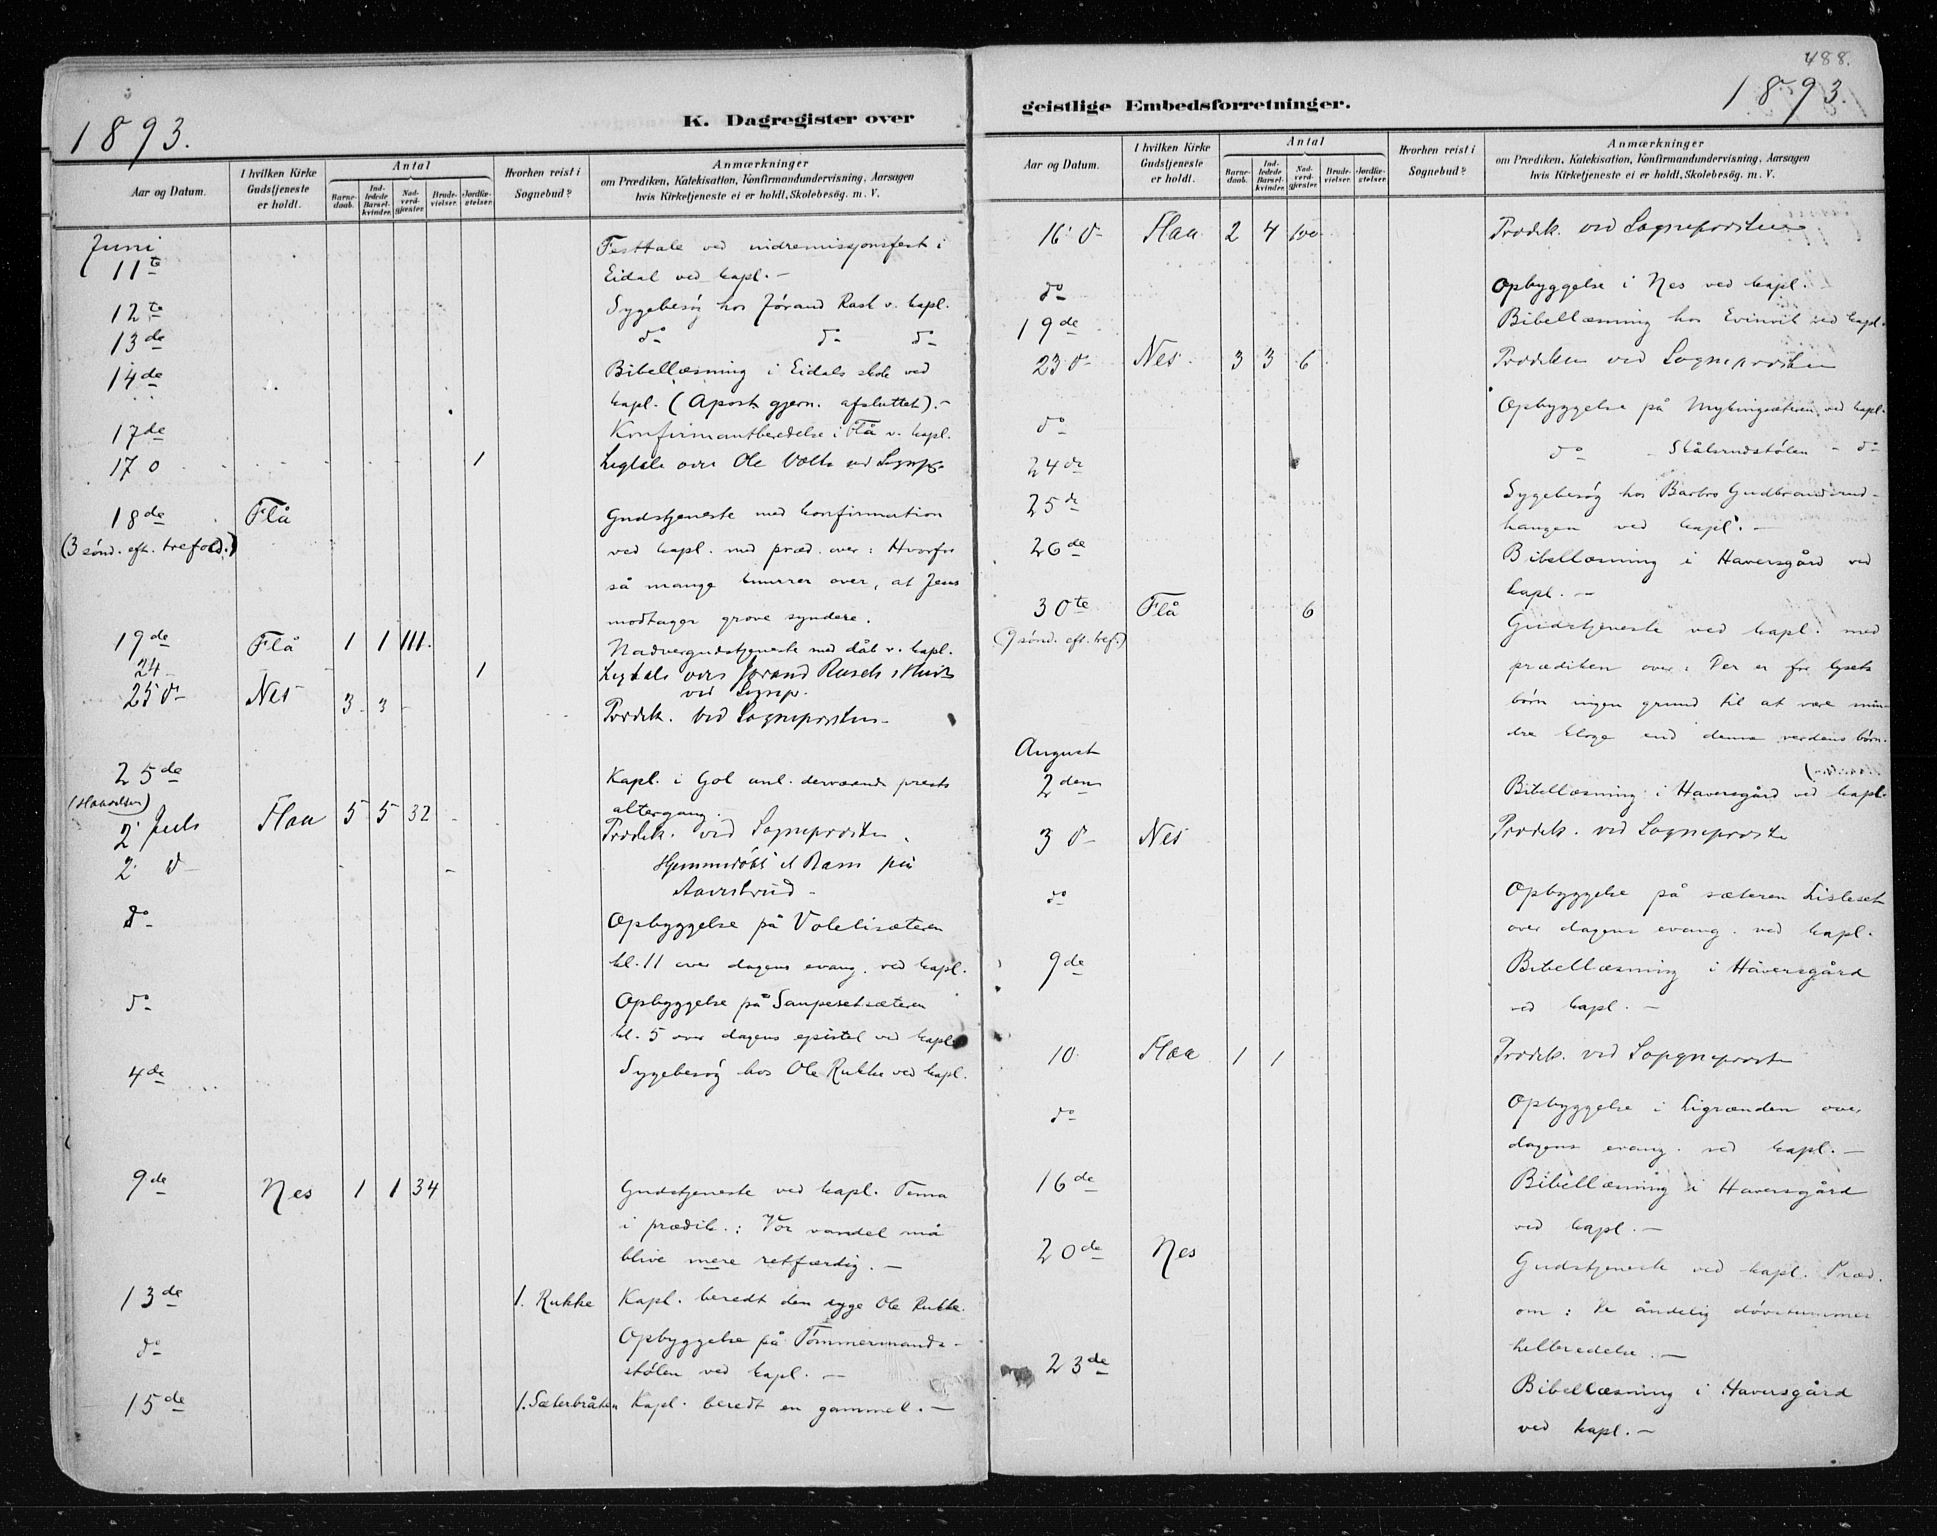 1893.
K. Dagregister over
Aar og Datum.
I hvilken Kirke Gudstjeneste er holdt.
Antal
Barnedaab.
Indledede Barselkvinder.
Nadverdgjæster.
Brudevielser.
Jordfæstelser.
Hvorhen reist i Sognebud?
Anmærkninger
om Prædiken, Katekisation, Konfirmandundervisning, Aarsagen
hvis Kirketjeneste ei er holdt, Skolebesøg m. V.
Juni
11te Festtale ved indremissjonsfest i
Eidal ved kapl. –
12te Sygebesøg hos Jørand Rask v. kapl.
13de do do do
14de Bibellæsning i Eidals skole ved
kapl. (Apost. gjern. afsluttet). –
17de Konfirmantberedelse i Flå v. kapl.
17 1 Ligtale over Ole ved Sognp.
18de Flå Gudstjeneste med konfirmation
(3 sønd. eft. trefold.) ved kapl. med præd. over: Hvorfor
så mange knurrer over, at Jesus
modtager grove syndere.
19de Flå 1 1 111. Nadvergudstjeneste med dåb v. kapl.
24 1 Ligtale over Jørand Rasch
ved Sognp.
25 Nes 3 3 - Prædik. ved Sogneprosten
25de Kapl. i Gol anl. derværende prests
altergang.
2 Juli Flaa 5 5 32 Prædik. ved Sogneprosten
2 Hjemmedøbt et Barn på
do Opbyggelse på Volelisæteren
kl. 11 over dagens evang. ved kapl.
do Opbyggelse på Saupesetsæteren
kl. 5 over dagens epistel ved kapl.
4de Sygebesøg hos Ole Rukke ved kapl.
9de Nes 1 1 34 Gudstjeneste ved kapl. Tema
i prædik.: Vor vandel må
blive mere retfærdig. –
13de 1. Rukke Kapl. beredt den syge Ole Rukke.
do Opbyggelse på Tømmermands-
stølen ved kapl. –
15de 1. Sæterbråten Kapl. beredt en gammel. –
488.
1893.
geistlige Embedsforretninger.
Aar og Datum.
I hvilken Kirke Gudstjeneste er holdt.
Antal
Barnedaab.
Indledede Barselkvinder.
Nadverdgjæster.
Brudevielser.
Jordfæstelser.
Hvorhen reist i Sognebud?
Anmærkninger
om Prædiken, Katekisation, Konfirmandundervisning, Aarsagen
hvis Kirketjeneste ei er holdt, Skolebesøg m. V.
16 Flaa 2 4 100 Prædik. ved Sogneprosten
do Opbyggelse i Nes ved kapl.
19de Bibellæsning hos Evinvik ved kapl.
23 Nes 3 3 6 Prædiken ved Sogneprosten
do Opbyggelse på Mykingsæteren ved kapl.
24de do Skålsrudstølen - do
25de Sygebesøg hos Barbro Gudbrandsrud-
hangen ved kapl. –
26de Bibellæsning i Haversgård ved
kapl. –
30te Flå 6 Gudstjeneste ved kapl. med
(9 sønd. eft. tref.) prædiken over: Der er for lysets
børn ingen grund til at være min-
dre kloge end denne verdens børn.
August
2den Bibellæsning i Haversgård ved kapl.
3 Nes Prædik. ved Sogneprosten
do Opbyggelse på sæteren Lisleset
over dagens evang. ved kapl.
9de Bibellæsning i Håversgård
ved kapl. –
10 Flaa 1 1 Prædik. ved Sogneprosten
do Opbyggelse i Ligrænden over
dagens evang. ved kapl. –
16de Bibellæsning i Haversgård
ved kapl. –
20de Nes Gudstjeneste ved kapl. Præd.
om: De åndelig døvstummes
helbredelse. –
23de Bibellæsning i Haversgård
ved kapl. –